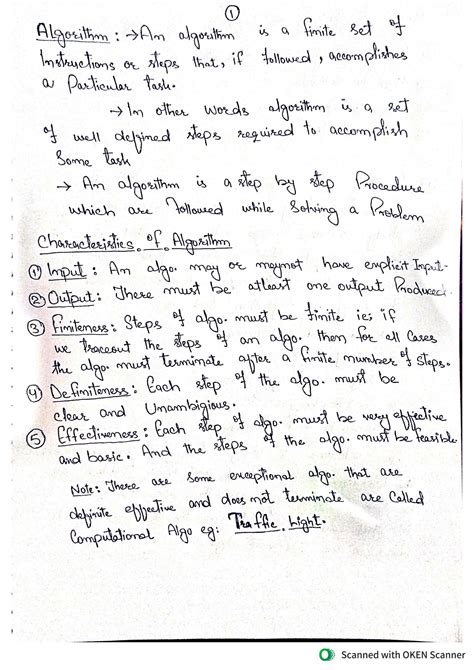 1
Algorithm : → An algorithm is a finite set of
Instructions or steps that, if followed, accomplishes
a Particular task.
→ In other words algorithm is a set
of well defined steps required to accomplish
Some task
→ An algorithm is a step by step Procedure
which are followed while Solving a Problem
Characteristics of Algorithm
① Input : An algo. may or maynot have explicit Input.
② Output : There must be atleast one output Produced
③ Finiteness : Steps of algo. must be finite ie; if
we traceout the steps of an algo. then for all Cases
the algo. must terminate after a finite number of steps.
④ Definiteness : Each step of the algo. must be
clear and Unambigious.
⑤ Effectiveness : Each step of algo. must be very effective
and basic. And the steps of the algo. must be feasible
Note : There are Some exceptional algo. that are
definite effective and does not terminate are Called
Computational Algo eg: Traffic Light.
Scanned with OKEN Scanner